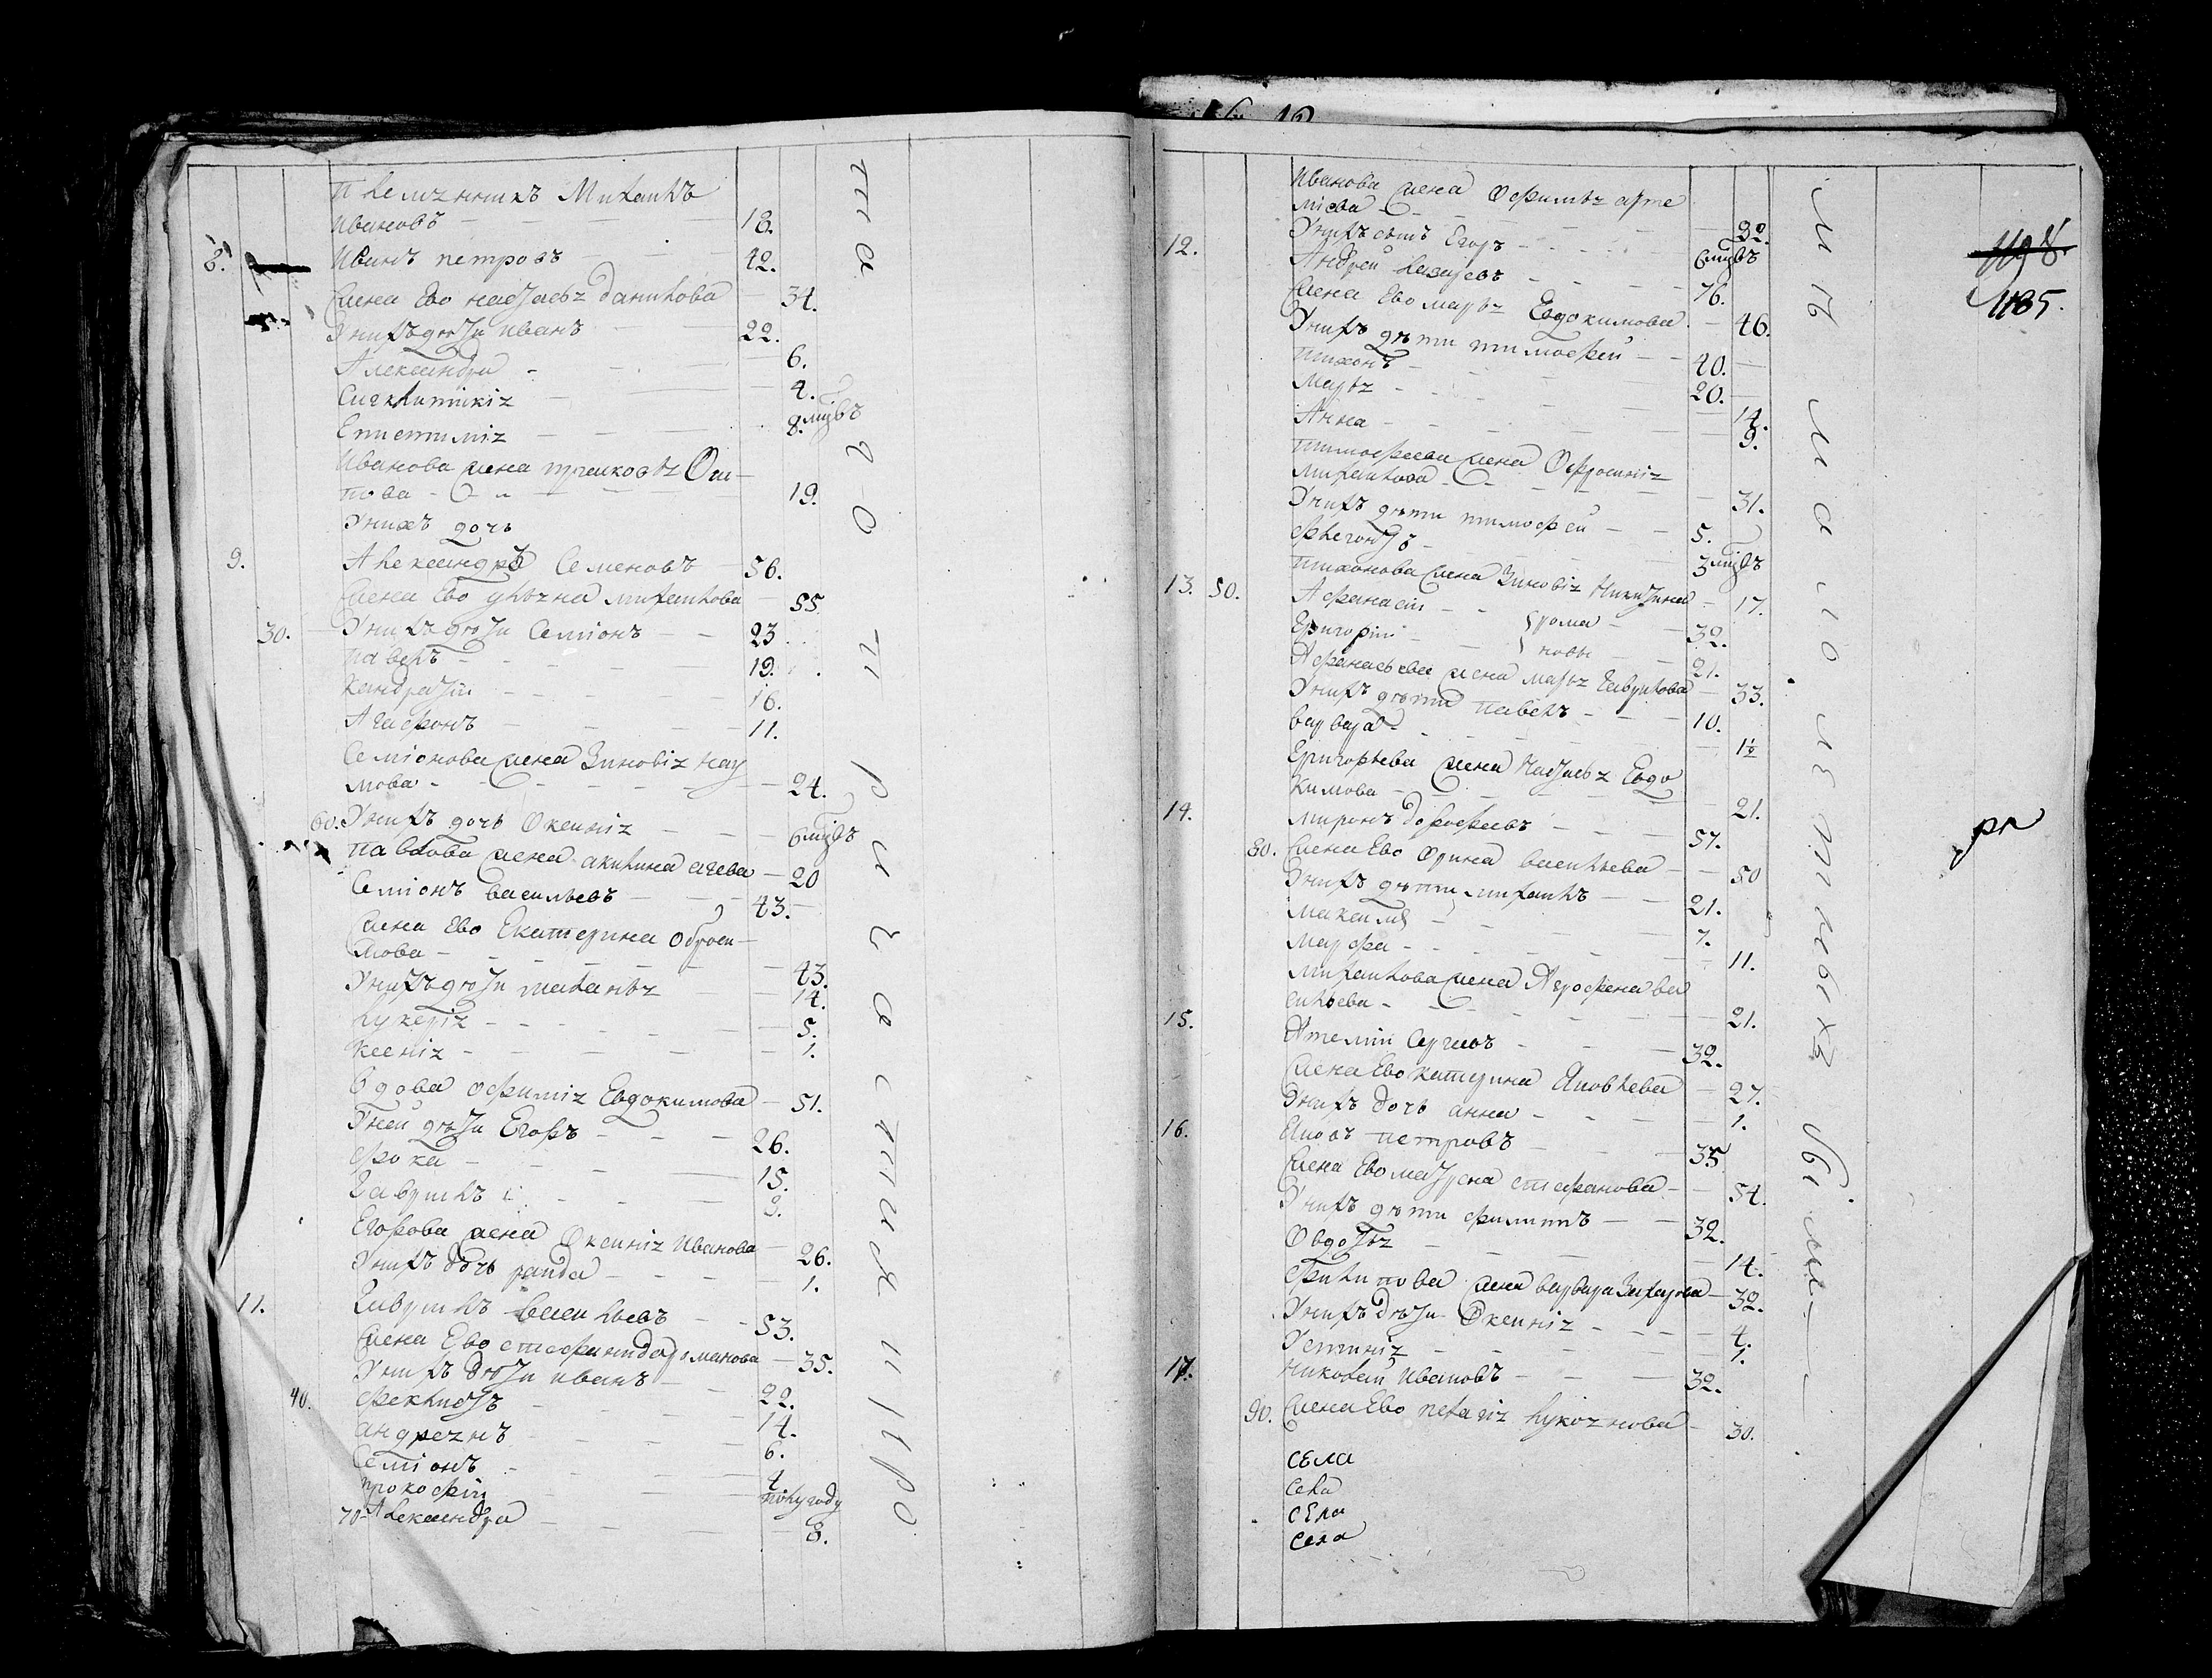 Племянникъ Михаилъ
Ивановъ 18.
8. Иванъ Петровъ 42.
жена ево настасья данилова 34.
У нихъ дѣти иванъ 22.
Александра 6.
Сигклитикія 4.
Епистимія 8. мцвъ
Иванова жена Оси
пова 19.
У нихъ дочь
9. Александръ Семеновъ 56.
жена ево ульяна михаилова 55
30. У нихъ дѣти Семіонъ 23
павелъ 19.
Кандратій 16.
Агафонъ 11.
Семіонова жена Зиновія нау
мова 24.
60. У нихъ дочь Оксинія 6 мцвъ
павлова жена акилина 20
Семіонъ васильевъ 43.
жена ево Екатерина
мова 43.
У нихъ дѣти маланья 14.
лукерія 5.
ксенія 1.
Вдова Офимія Евдокимова 51.
У ней дѣти Егоръ 26.
фока 15.
Гаврилъ 9.
Егорова жена Оксинія иванова 26.
У нихъ дочь раида 1.
11. Гаврилъ васильевъ 53.
жена ево стефанида романова 35.
У нихъ дѣти иванъ 22.
40. феклистъ 14.
андреянъ 6.
Семіонъ 4
прокофій полугоду
70 Александра 8.
та
го
п
ри
че
стия
и
про
иванова жена Офимья арте
міева 32.
У нихъ сынъ Егоръ 6 мцвъ
12. Андрей лазаревъ 76.
жена ево марья Евдокимова 46.
У нихъ дѣти тимофей 40.
тихонъ 20.
марья 14.
Анна 9.
тимофеева жена Офросинія
михаилова 31.
У нихъ дѣти тимофей 5.
флегонтъ 3 мцвъ
тихонова жена Зиновія никитина 17.
13. 50. Афанасій рома 32.
Григорій новы 21.
Афанасьева жена марья Гаврилова 33.
У нихъ дѣти павелъ 10.
варвара 1½
Григорьева жена настасья Евдо
кимова 21.
14. миронъ дорофеевъ 57.
80. жена ево Орина васильева 50
У нихъ дѣти михаилъ 21.
максимъ 7.
марфа 11.
михаилова жена Агрофена ва
сильева 21.
15. Артемій Сергиевъ 32.
жена ево катерина Яковлева 27.
У нихъ дочь анна 1.
16. Яковъ петровъ 35
жена ево матрена стефанова 54.
У нихъ дѣти филиппъ 32.
Овдотья 14.
филипова жена варвара Захарова 32.
У нихъ дѣти Оксинія 4.
Устинія 1.
17. николай ивановъ 32.
90. жена ево пелагія лукоянова 30.
села
села
села
села
1198.
1185.